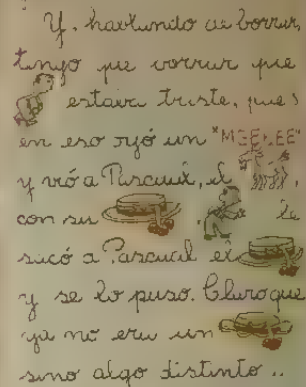 Y, hablando de borrar,
tengo que borrar que
estaba triste, pues
en eso oyó un "MEEEEE"
y vió a Pascual, el ,
con su le
sacó a Pascual el
y se lo puso. Claro que
ya no era un
sino algo distinto ..